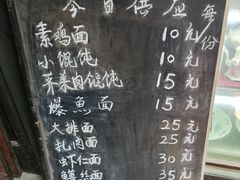 今日供应 每份
素鸡面 10元
小馄饨 10元
荠菜肉馄饨 15元
爆魚面 15元
大排面 25元
扎肉面 25元
虾仁面 30元
鳝丝面 35元